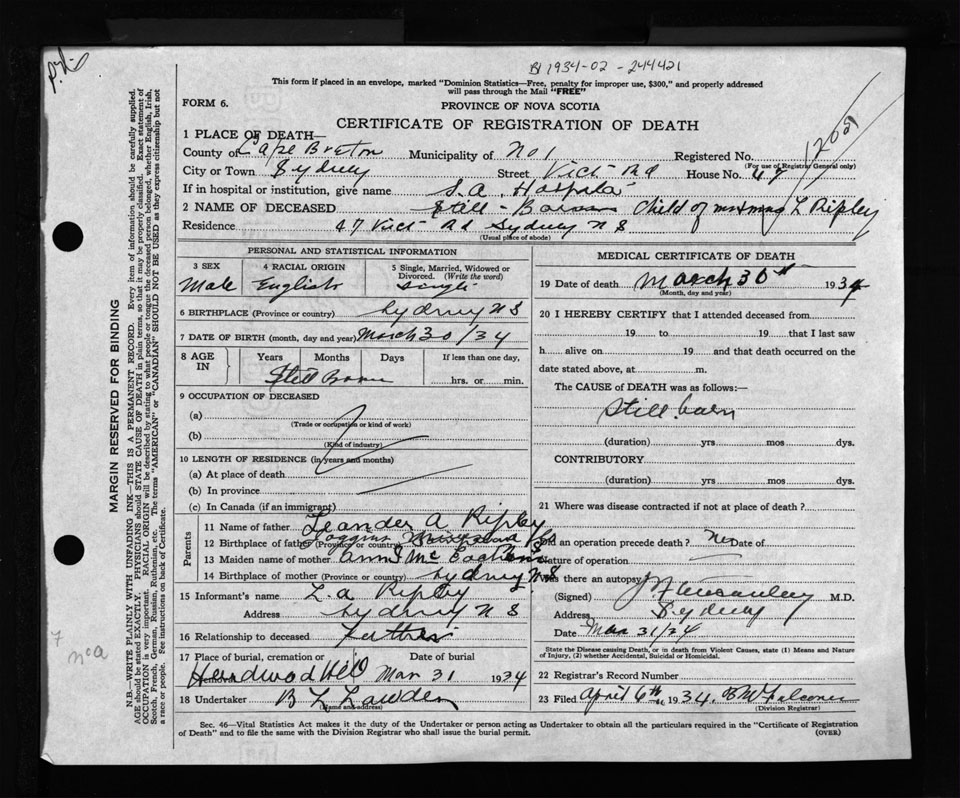 B 1934-02-244421
This form if placed in an envelope, marked "Dominion Statistics—Free, penalty for improper use, $300," and properly addressed
will pass through the Mail "FREE"
FORM 6.
PROVINCE OF NOVA SCOTIA
CERTIFICATE OF REGISTRATION OF DEATH
1 PLACE OF DEATH—
County of Cape Breton Municipality of No 1 Registered No.
(For use of Registrar General only)
City or Town Sydney Street Vict Rd House No. 47
If in hospital or institution, give name S.A. Hospital
2 NAME OF DECEASED Still-Born Child of L Ripley
Residence 47 Vict Rd Sydney N S
(Usual place of abode)
PERSONAL AND STATISTICAL INFORMATION
3 SEX Male
4 RACIAL ORIGIN English
5 Single, Married, Widowed or Divorced. (Write the word) Single
6 BIRTHPLACE (Province or country) Sydney N S
7 DATE OF BIRTH (month, day and year) March 30/34
8 AGE IN Years Months Days If less than one day, hrs. or min.
Still Born
9 OCCUPATION OF DECEASED
(a)
(Trade or occupation or kind of work)
(b)
(Kind of industry)
10 LENGTH OF RESIDENCE (in years and months)
(a) At place of death
(b) In province
(c) In Canada (if an immigrant)
Parents
11 Name of father Leander A Ripley
12 Birthplace of father (Province or country) Joggins N S
13 Maiden name of mother Ann S McEachern
14 Birthplace of mother (Province or country) Sydney N S
15 Informant's name L. A Ripley
Address Sydney N S
16 Relationship to deceased Father
17 Place of burial, cremation or Date of burial
Hardwood Hill Mar 31 1934
18 Undertaker B L Lawden
(Name and address)
MEDICAL CERTIFICATE OF DEATH
19 Date of death March 30th 1934
(Month, day and year)
20 I HEREBY CERTIFY that I attended deceased from
19 to 19, that I last saw
h alive on 19 and that death occurred on the
date stated above, at m.
The CAUSE of DEATH was as follows:—
Still born
(duration) yrs mos dys.
CONTRIBUTORY
(duration) yrs mos dys.
21 Where was disease contracted if not at place of death?
Did an operation precede death? No Date of
Nature of operation
Was there an autopsy
(Signed) M.D.
Address Sydney
Date Mar 31/34
State the Disease causing Death, or in death from Violent Causes, state (1) Means and Nature
of Injury, (2) whether Accidental, Suicidal or Homicidal.
22 Registrar's Record Number
23 Filed April 6th 1934.
(Division Registrar)
Sec. 46—Vital Statistics Act makes it the duty of the Undertaker or person acting as Undertaker to obtain all the particulars required in the "Certificate of Registration
of Death" and to file the same with the Division Registrar who shall issue the burial permit. (OVER)
MARGIN RESERVED FOR BINDING
N.B.—WRITE PLAINLY WITH UNFADING INK—THIS IS A PERMANENT RECORD. Every item of information should be carefully supplied.
AGE should be stated EXACTLY. PHYSICIANS should STATE CAUSE OF DEATH in plain terms, so that it may be properly classified. Exact statement of
OCCUPATION is very important. RACIAL ORIGIN will be described by stating to what people or tongue the deceased person belonged, whether English, Irish,
Scotch, French, German, Russian, Ruthenian, etc. The terms "AMERICAN" or "CANADIAN" SHOULD NOT BE USED as they express citizenship but not
a race or people. See instructions on back of Certificate.